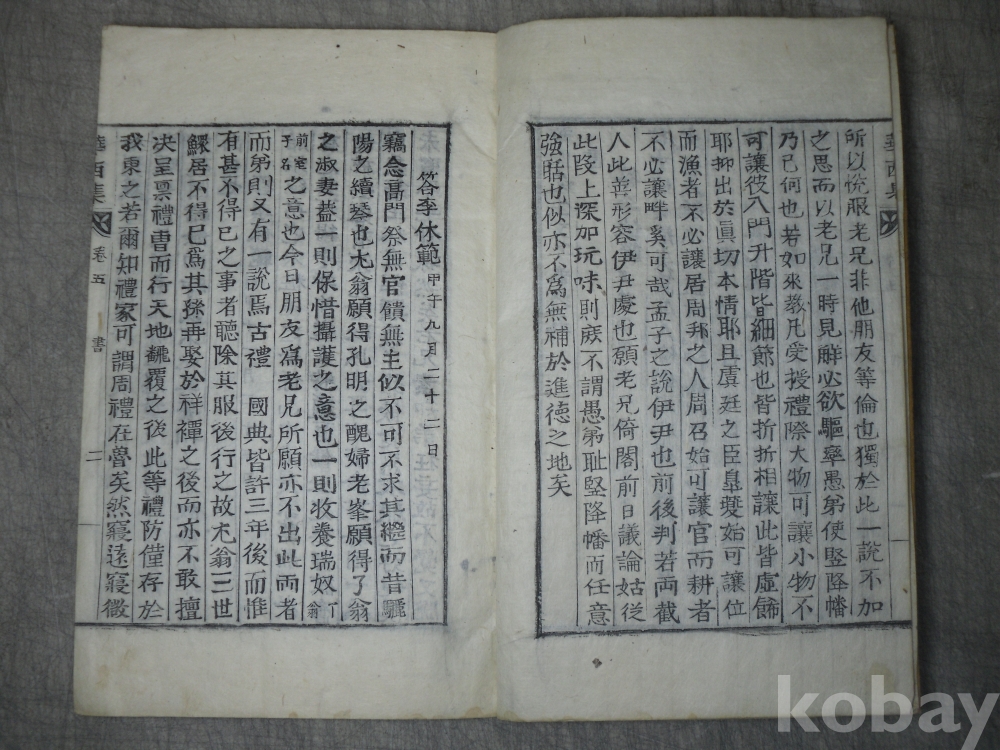 所以悅服老兄非他朋友等倫也獨於此一說不加
之思而以老兄一時見解必欲驅率愚弟使竪降幡
乃已何也若如來敎凡受授禮際大物可讓小物不
可讓彼入門升階皆細節也皆折折相讓此皆虛飾
耶抑出於眞切本情耶且虞廷之臣皐夔始可讓位
而漁者不必讓居周邦之人周召始可讓官而耕者
不必讓畔奚可哉孟子之說伊尹也前後判若兩截
人此善形容伊尹處也願老兄倚閣前日議論姑從
此段上深加玩味則庶不謂愚弟耻竪降幡而任意
強聒也似亦不爲無補於進德之地矣
答李休範甲午九月二十二日
竊念高門祭無官饋無主似不可不求其繼而昔驪
陽之續琴也尤翁願得孔明之醜婦老峯願得了翁
之淑妻葢一則保惜攝護之意也一則收養瑞奴丁翁
前室子名之意也今日朋友爲老兄所願亦不出此兩者
而弟則又有一說焉古禮 國典皆許三年後而惟
有甚不得已之事者聽除其服後行之故尤翁三世
鰥居不得已爲其孫再娶於祥禫之後而亦不敢擅
决呈禀禮曹而行天地飜覆之後此等禮防僅存於
我東之若爾知禮家可謂周禮在魯矣然寢遠寢微
華西集 卷五 書 二
華西集